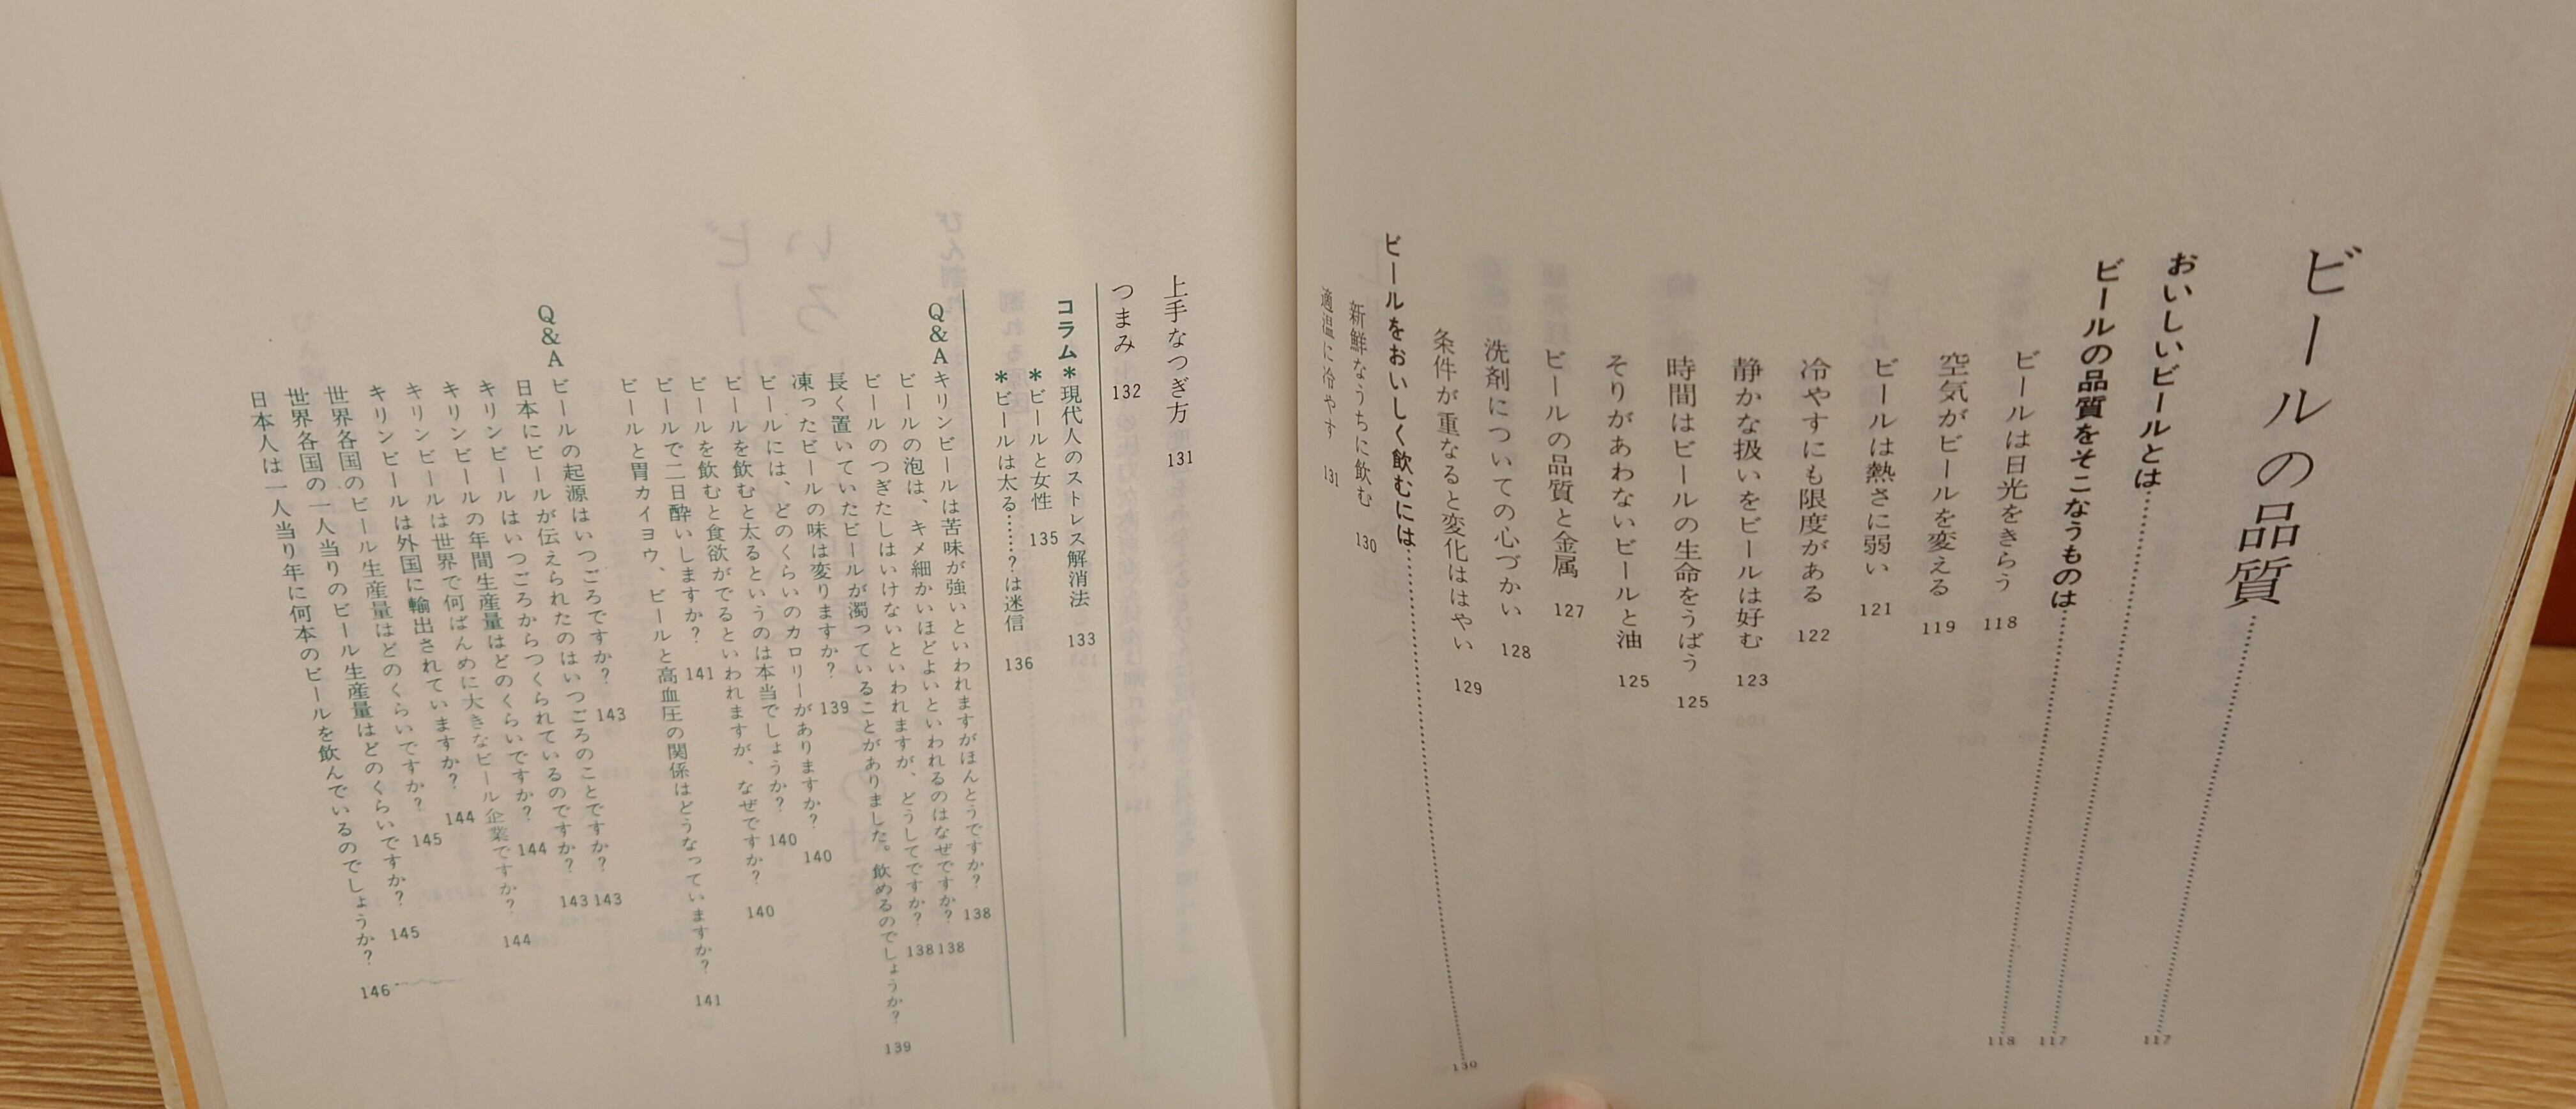 ビールの品質……117
おいしいビールとは……117
ビールの品質をそこなうものは……118
ビールは日光をきらう 118
空気がビールを変える 119
ビールは熱さに弱い 121
冷やすにも限度がある 122
静かな扱いをビールは好む 123
時間はビールの生命をうばう 125
そりがあわないビールと油 125
ビールの品質と金属 127
洗剤についての心づかい 128
条件が重なると変化ははやい 129
ビールをおいしく飲むには……130
新鮮なうちに飲む 130
適温に冷やす 131
上手なつぎ方 131
つまみ 132
コラム*現代人のストレス解消法 133
*ビールと女性 135
*ビールは太る……?は迷信 136
Q&A キリンビールは苦味が強いといわれますがほんとうですか? 138
ビールの泡は、キメ細かいほどよいといわれるのはなぜですか? 138
ビールのつぎたしはいけないといわれますが、どうしてですか? 138
長く置いていたビールが濁っていることがありました。飲めるのでしょうか? 139
凍ったビールの味は変りますか? 139
ビールには、どのくらいのカロリーがありますか? 140
ビールを飲むと太るというのは本当でしょうか? 140
ビールを飲むと食欲がでるといわれますが、なぜですか? 140
ビールで二日酔いしますか? 141
ビールと胃カイヨウ、ビールと高血圧の関係はどうなっていますか? 141
Q&A ビールの起源はいつごろですか? 143
日本にビールが伝えられたのはいつごろのことですか? 143
キリンビールはいつごろからつくられているのですか? 143
キリンビールの年間生産量はどのくらいですか? 144
キリンビールは世界で何ばんめに大きなビール企業ですか? 144
キリンビールは外国に輸出されていますか? 144
世界各国のビール生産量はどのくらいですか? 145
世界各国の一人当りのビール生産量はどのくらいですか? 145
日本人は一人当り年に何本のビールを飲んでいるのでしょうか? 146